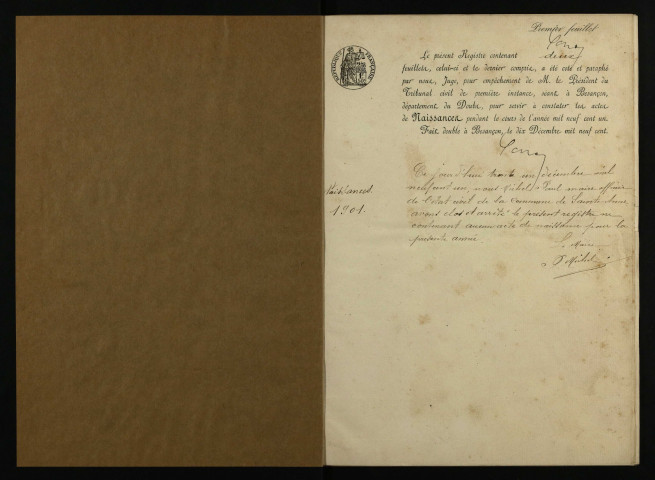 Premier feuillet
RÉPUBLIQUE FRANÇAISE
Le présent Registre contenant deux
feuillets, celui-ci et le dernier compris, a été coté et paraphé
par nous, Juge, pour empêchement de M. le Président du
Tribunal civil de première instance, séant à Besançon,
département du Doubs, pour servir à constater les actes
de Naissances pendant le cours de l'année mil neuf cent un.
Fait double à Besançon, le dix Décembre mil neuf cent.
Naissances
1901.
Ce jourd'hui trente un décembre mil
neuf cent un, nous Michel Paul maire officier
de l'état civil de la commune de
avons clos et arrêté le présent registre ne
contenant aucun acte de naissance pour la
présente année
Le Maire
P Michel